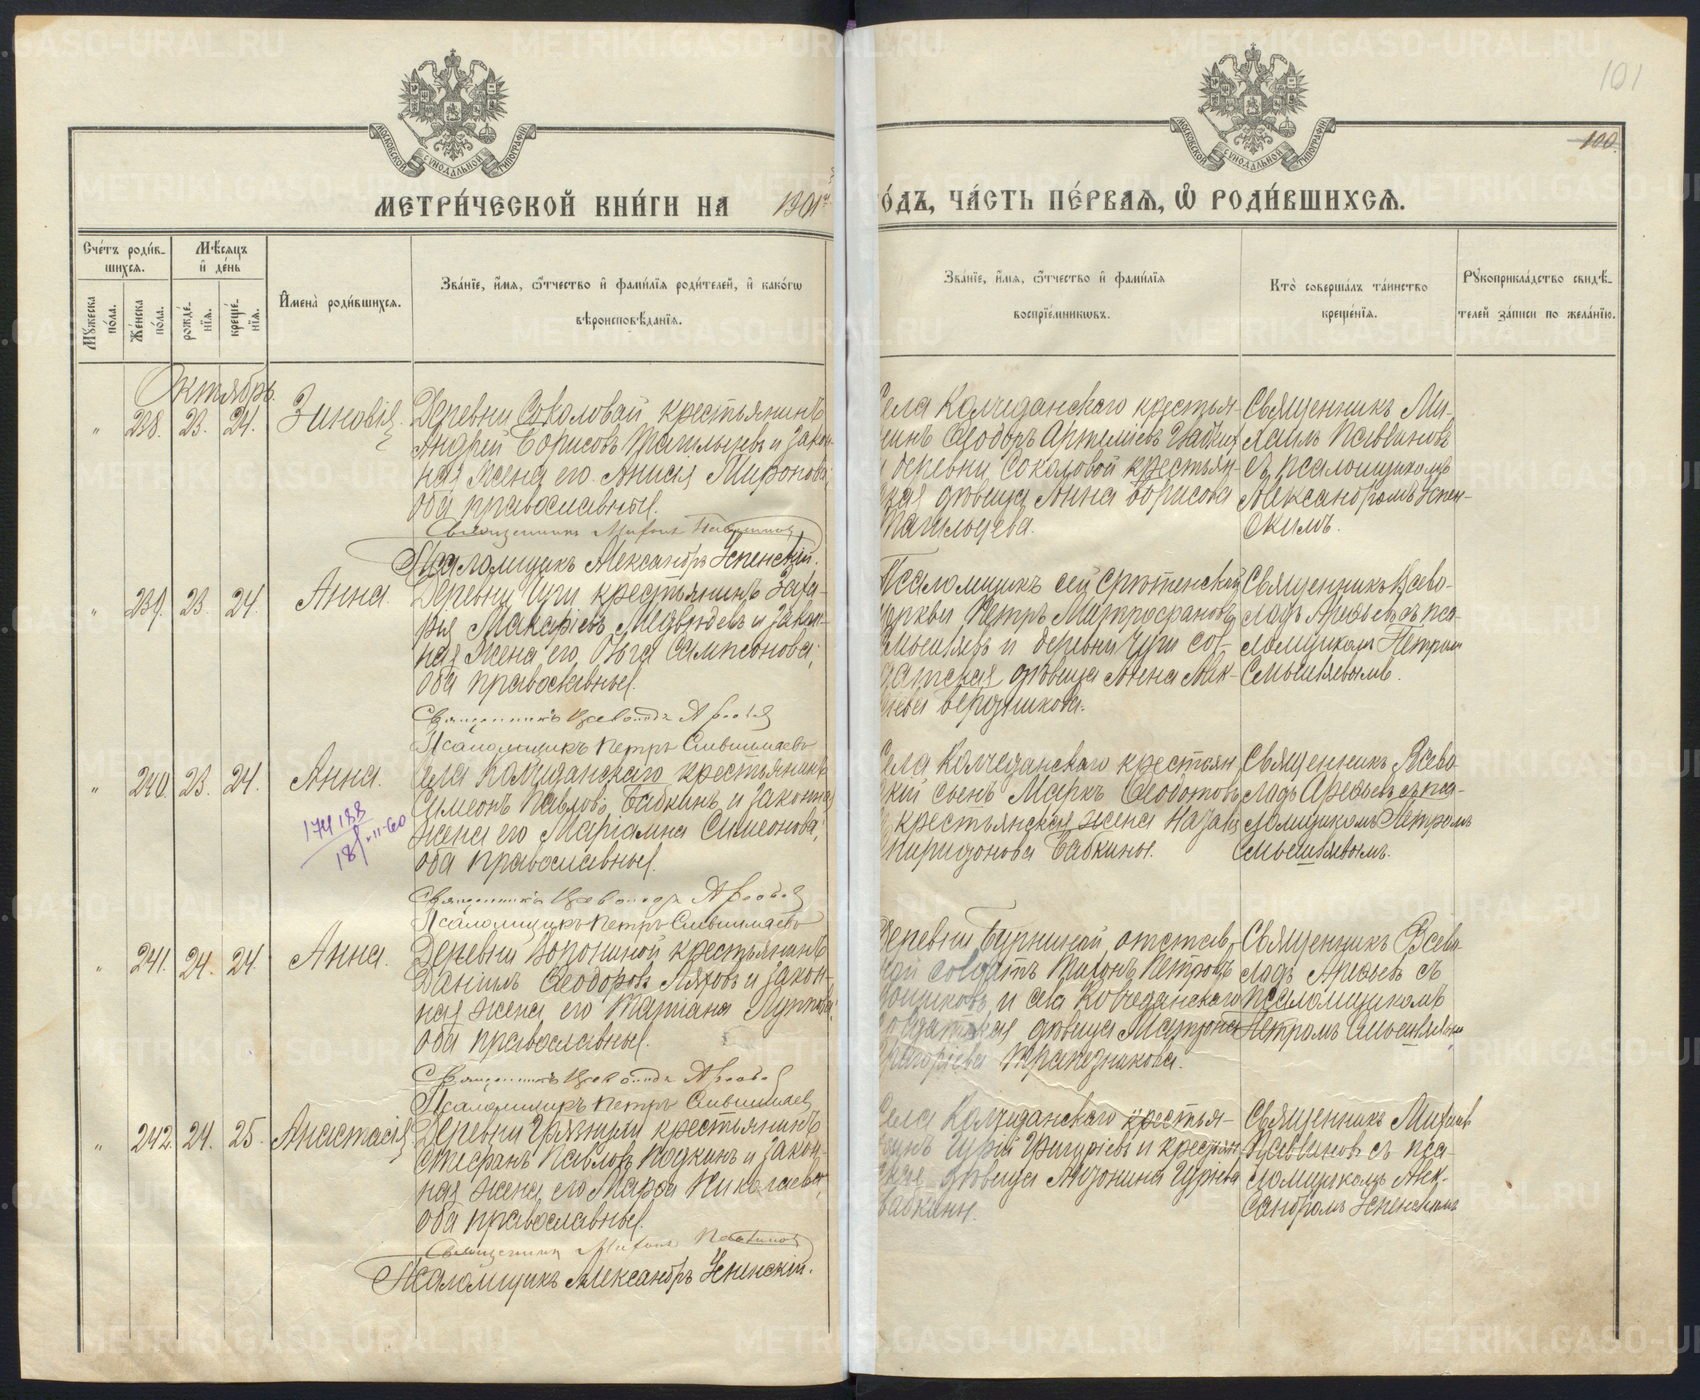 101
100.
МОСКОВСКОЙ СУНОДАЛЬНОЙ ТИПОГРАФІИ
МОСКОВСКОЙ СУНОДАЛЬНОЙ ТИПОГРАФІИ
МЕТРИ́ЧЕСКОЙ КНИ́ГИ НА 1901й
О́ДЪ, ЧА́СТЬ ПЕ́РВАѦ, Ѽ РОДИ́ВШИХСѦ.
Сче́тъ роди́в-
шихсѧ.
Мꙋ́жеска по́ла.
Же́нска по́ла.
Мѣ́сѧцъ
и҆ де́нь
рожде́-
нїѧ.
креще́-
нїѧ.
И҆мена̀ роди́вшихсѧ.
Зва́нїе, и҆́мѧ, ѻ҆́тчество и҆ фами́лїѧ роди́телей, и҆ како́гѡ
вѣроисповѣ́данїѧ.
Зва́нїе, и҆́мѧ, ѻ҆́тчество и҆ фами́лїѧ
воспрїе́мникѡвъ.
Кто̀ соверша́лъ та́инство
креще́нїѧ.
Рꙋкоприкла́дство свидѣ́-
телей за́писи по жела́нїю.
Октябрь.
" 238. 23. 24. Зиновія.
Деревни Соколовой крестьянинъ
Андрей Борисовъ Тагильцевъ и закон-
ная жена его Анисія Миронова;
оба православные.
Священникъ Михаилъ
Псаломщикъ Александръ Успенскій.
Села Колчеданскаго крестья-
нинъ Ѳеодоръ Артеміевъ
и деревни Соколовой крестьян-
ская дѣвица Анна Борисова
Тагильцева.
Священникъ Ми-
хаилъ
съ псаломщикомъ
Александромъ Успен-
скимъ.
" 239. 23. 24. Анна.
Деревни Чуги крестьянинъ Заха-
рія Макаріевъ Медвѣдевъ и закон-
ная жена его Ольга Сампсонова;
оба православные.
Священникъ Всеволодъ Арефьевъ
Псаломщикъ Петръ
Псаломщикъ сей Срѣтенской
церкви Петръ Митрофановъ
и деревни Чуги сол-
датская дѣвица Анна
Бердникова.
Священникъ Всево-
лодъ Арефьевъ съ пса-
ломщикомъ Петромъ
" 240. 23. 24. Анна.
174 188
18 /II-60
Села Колчеданскаго крестьянинъ
Симеонъ Павловъ Бабкинъ и законная
жена его Маріамна Симеонова;
оба православные.
Священникъ Всеволодъ Арефьевъ
Псаломщикъ Петръ
Села Колчеданскаго крестьян-
скій сынъ Маркъ Ѳеодотовъ
и крестьянская жена
Спиридонова Бабкины.
Священникъ Всево-
лодъ Арефьевъ съ пса-
ломщикомъ Петромъ
" 241. 24. 24. Анна.
Деревни Ворониной крестьянинъ
Даніилъ Ѳеодоровъ Ляховъ и закон-
ная жена его Маріана
оба православные.
Священникъ Всеволодъ Арефьевъ
Псаломщикъ Петръ
Деревни Бурниной отстав-
ной солдатъ Тихонъ Петровъ
и села Колчеданскаго
солдатская дѣвица Матрона
Григорьева Трапезникова.
Священникъ Всево-
лодъ Арефьевъ съ
псаломщикомъ
Петромъ
" 242. 24. 25. Анастасія
Деревни Грязнухи крестьянинъ
Стефанъ Павловъ и закон-
ная жена его Марѳа Николаева,
оба православные.
Священникъ Михаилъ
Псаломщикъ Александръ Успенскій.
Села Колчеданскаго крестья-
нинъ Гурій Григорьевъ и крестьян-
ская дѣвица Антонина Гурьева
Бабкины.
Священникъ Михаилъ
съ пса-
ломщикомъ Алек-
сандромъ Успенскимъ
METRIKI.GASO-URAL.RU